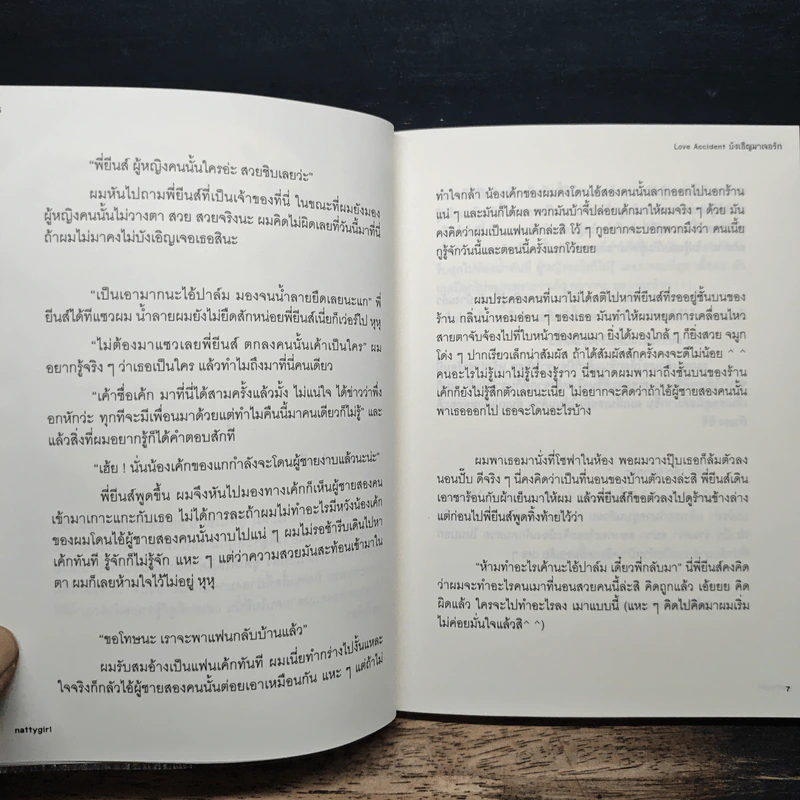 “พี่ยีนส์ ผู้หญิงคนนั้นใครอ่ะ สวยชิบเลยว่ะ”
ผมหันไปถามพี่ยีนส์ที่เป็นเจ้าของที่นี่ ในขณะที่ผมยังมอง
ผู้หญิงคนนั้นไม่วางตา สวย สวยจริงนะ ผมคิดไม่ผิดเลยที่วันนี้มาที่นี่
ถ้าผมไม่มาคงไม่บังเอิญเจอเธอสินะ
“เป็นเอามากนะไอ้ปาล์ม มองจนน้ำลายยืดเลยนะแก” พี่
ยีนส์ได้ทีแซวผม น้ำลายผมยังไม่ยืดสักหน่อยพี่ยีนส์เนี่ยก็เว่อร์ไป หุหุ
“ไม่ต้องมาแซวเลยพี่ยีนส์ ตกลงคนนั้นเค้าเป็นใคร” ผม
อยากรู้จริง ๆ ว่าเธอเป็นใคร แล้วทำไมถึงมาที่นี่คนเดียว
“เค้าชื่อเค้ก มาที่นี่ได้สามครั้งแล้วมั้ง ไม่แน่ใจ ได้ข่าวว่าพึ่ง
อกหักว่ะ ทุกทีจะมีเพื่อนมาด้วยแต่ทำไมคืนนี้มาคนเดียวก็ไม่รู้” และ
แล้วสิ่งที่ผมอยากรู้ก็ได้คำตอบสักที
“เฮ้ย ! นั่นน้องเค้กของแกกำลังจะโดนผู้ชายงาบแล้วนะน่ะ”
พี่ยีนส์พูดขึ้น ผมจึงหันไปมองทางเค้กก็เห็นผู้ชายสองคน
เข้ามาเกาะแกะกับเธอ ไม่ได้การละถ้าผมไม่ทำอะไรมีหวังน้องเค้ก
ของผมโดนไอ้ผู้ชายสองคนนั้นงาบไปแน่ ๆ ผมไม่รอช้ารีบเดินไปหา
เค้กทันที รู้จักก็ไม่รู้จัก แหะ ๆ แต่ว่าความสวยมันสะท้อนเข้ามาใน
ตา ผมก็เลยห้ามใจไว้ไม่อยู่ หุหุ
“ขอโทษนะ เราจะพาแฟนกลับบ้านแล้ว”
ผมรับสมอ้างเป็นแฟนเค้กทันที ผมเนี่ยทำกร่างไปงั้นแหละ
ใจจริงก็กลัวไอ้ผู้ชายสองคนนั้นต่อยเอาเหมือนกัน แหะ ๆ แต่ถ้าไม่
nattygirl
Love Accident บังเอิญมาเจอรัก
ทำใจกล้า น้องเค้กของผมคงโดนไอ้สองคนนั้นลากออกไปนอกร้าน
แน่ ๆ และมันก็ได้ผล พวกมันบ้าจี้ปล่อยเค้กมาให้ผมจริง ๆ ด้วย มัน
คงคิดว่าผมเป็นแฟนเค้กล่ะสิ โว้ ๆ กูอยากจะบอกพวกมึงว่า คนเนี้ย
กูรู้จักวันนี้และตอนนี้ครั้งแรกโว้ยยย
ผมประคองคนที่เมาไม่ได้สติไปหาพี่ยีนส์ที่รออยู่ชั้นบนของ
ร้าน กลิ่นน้ำหอมอ่อน ๆ ของเธอ มันทำให้ผมหยุดการเคลื่อนไหว
สายตาจับจ้องไปที่ใบหน้าของคนเมา ยิ่งได้มองใกล้ ๆ ก็ยิ่งสวย จมูก
โด่ง ๆ ปากเรียวเล็กน่าสัมผัส ถ้าได้สัมผัสสักครั้งคงจะดีไม่น้อย ^ ^
คนอะไรไม่รู้เมาไม่รู้เรื่องรู้ราว นี่ขนาดผมพามาถึงชั้นบนของร้าน
เค้กก็ยังไม่รู้สึกตัวเลยนะเนี่ย ไม่อยากจะคิดว่าถ้าไอ้ผู้ชายสองคนนั้น
พาเธอออกไป เธอจะโดนอะไรบ้าง
ผมพาเธอมานั่งที่โซฟาในห้อง พอผมวางปุ๊บเธอก็ล้มตัวลง
นอนปั๊บ ดีจริง ๆ นี่คงคิดว่าเป็นที่นอนของบ้านตัวเองล่ะสิ พี่ยีนส์เดิน
เอาชาร้อนกับผ้าเย็นมาให้ผม แล้วพี่ยีนส์ก็ขอตัวลงไปดูร้านข้างล่าง
แต่ก่อนไปพี่ยีนส์พูดทิ้งท้ายไว้ว่า
“ห้ามทำอะไรเค้านะไอ้ปาล์ม เดี๋ยวพี่กลับมา” นี่พี่ยีนส์คงคิด
ว่าผมจะทำอะไรคนเมาที่นอนสวยคนนี้ล่ะสิ คิดถูกแล้ว เอ้ยยย คิด
ผิดแล้ว ใครจะไปทำอะไรลง เมาแบบนี้ (แหะ ๆ คิดไปคิดมาผมเริ่ม
ไม่ค่อยมั่นใจแล้วสิ^ ^)
7